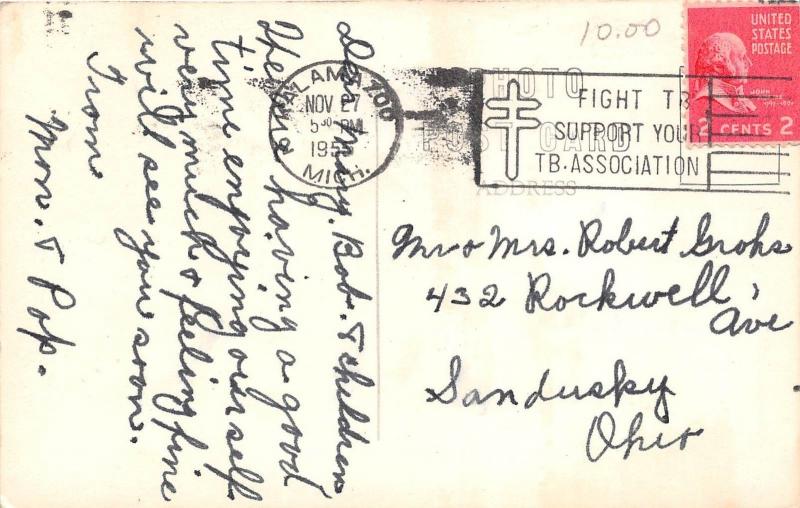 10.00
UNITED
STATES
POSTAGE
JOHN
2 CENTS 2
NOV 27
5 30 PM
195
MICH.
FIGHT TB
SUPPORT YOUR
TB. ASSOCIATION
PHOTO
POST CARD
ADDRESS
Dear Mary. Bob. & children
Here having a good
time enjoying ourself
very much & feeling fine
will see you soon.
From
Mom. & Pop.
Mr & Mrs. Robert Grohs
432 Rockwell,
Ave
Sandusky
Ohio